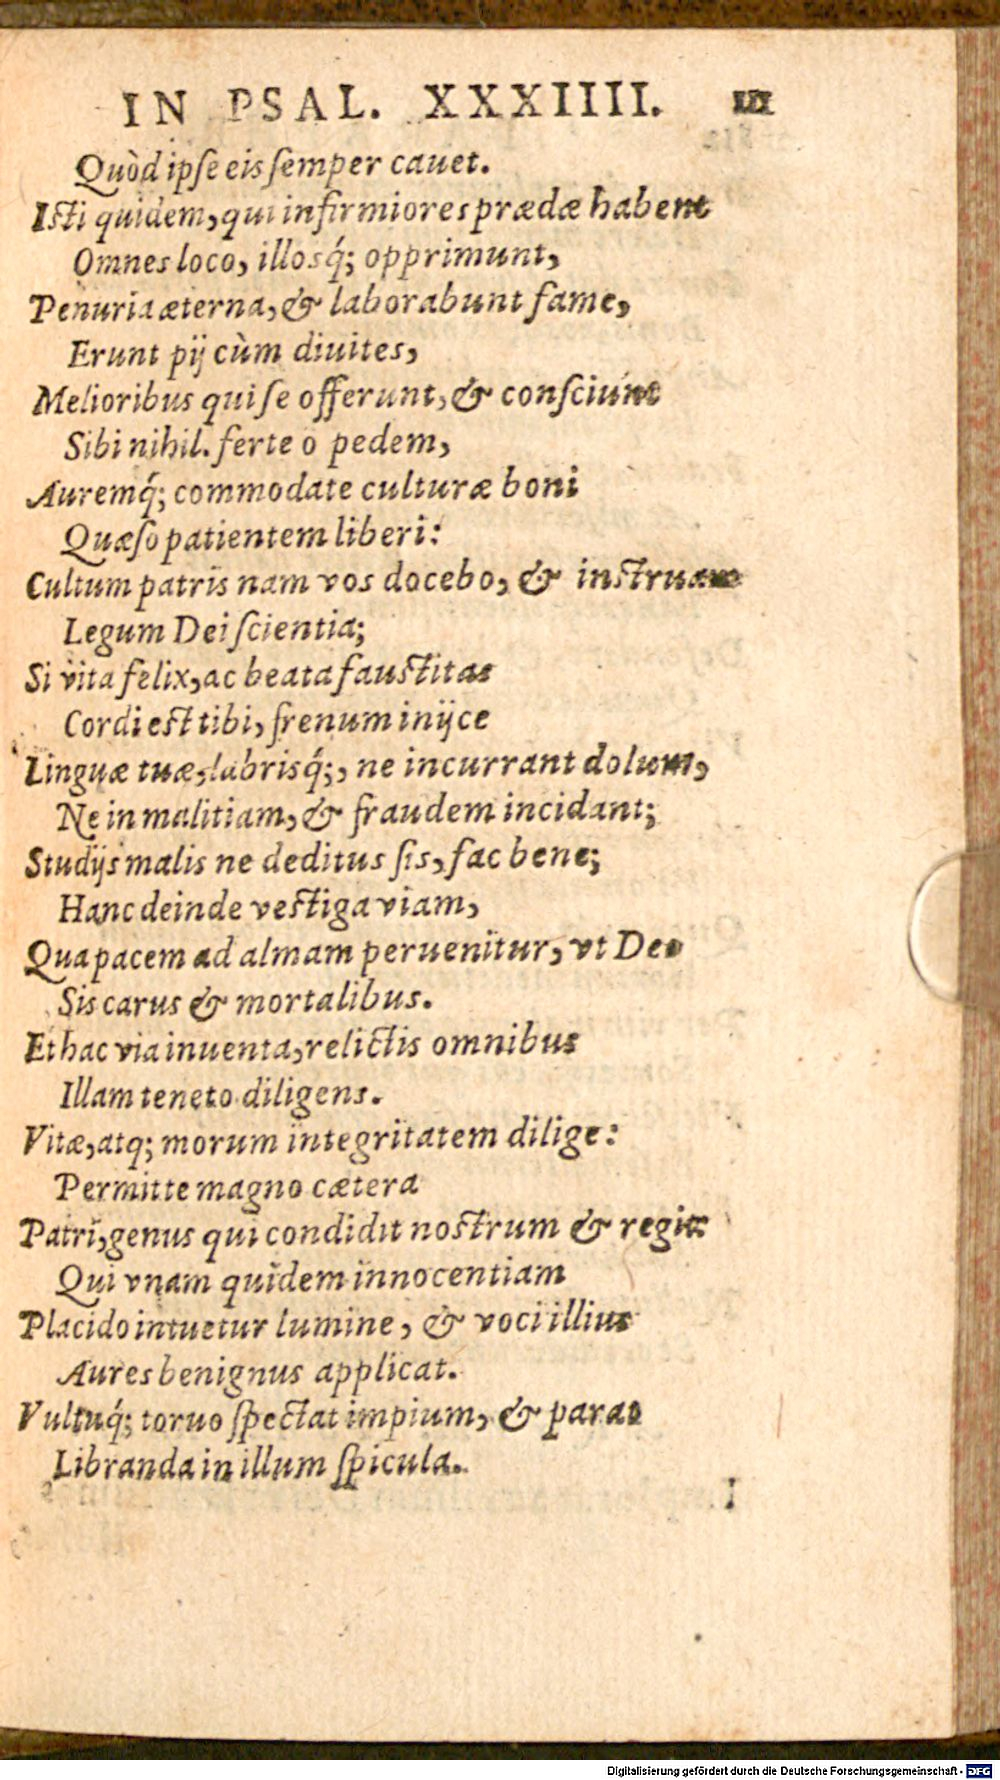 IN PSAL. XXXIIII. III
Quòd ipſe eis ſemper cauet.
Iſti quidem, qui infirmiores prædæ habent
Omnes loco, illosq́; opprimunt,
Penuria æterna, & laborabunt fame,
Erunt pij cùm diuites,
Melioribus qui ſe offerunt, & conſciunt
Sibi nihil. ferte o pedem,
Auremq́; commodate culturæ boni
Quæſo patientem liberi:
Cultum patris nam vos docebo, & inſtruam
Legum Dei ſcientia;
Si vita felix, ac beata fauſtitas
Cordi eſt tibi, frenum inijce
Linguæ tuæ, labrisq́;, ne incurrant dolum,
Ne in malitiam, & fraudem incidant;
Studijs malis ne deditus ſis, fac bene;
Hanc deinde veſtiga viam,
Qua pacem ad almam peruenitur, vt Deo
Sis carus & mortalibus.
Et hac via inuenta, relictis omnibus
Illam teneto diligens.
Vitæ, atq; morum integritatem dilige:
Permitte magno cætera
Patri, genus qui condidit noſtrum & regit
Qui vnam quidem innocentiam
Placido intuetur lumine, & voci illius
Aures benignus applicat.
Vultuq́; toruo ſpectat impium, & parat
Libranda in illum ſpicula.
I
Digitalisierung gefördert durch die Deutsche Forschungsgemeinschaft - DFG